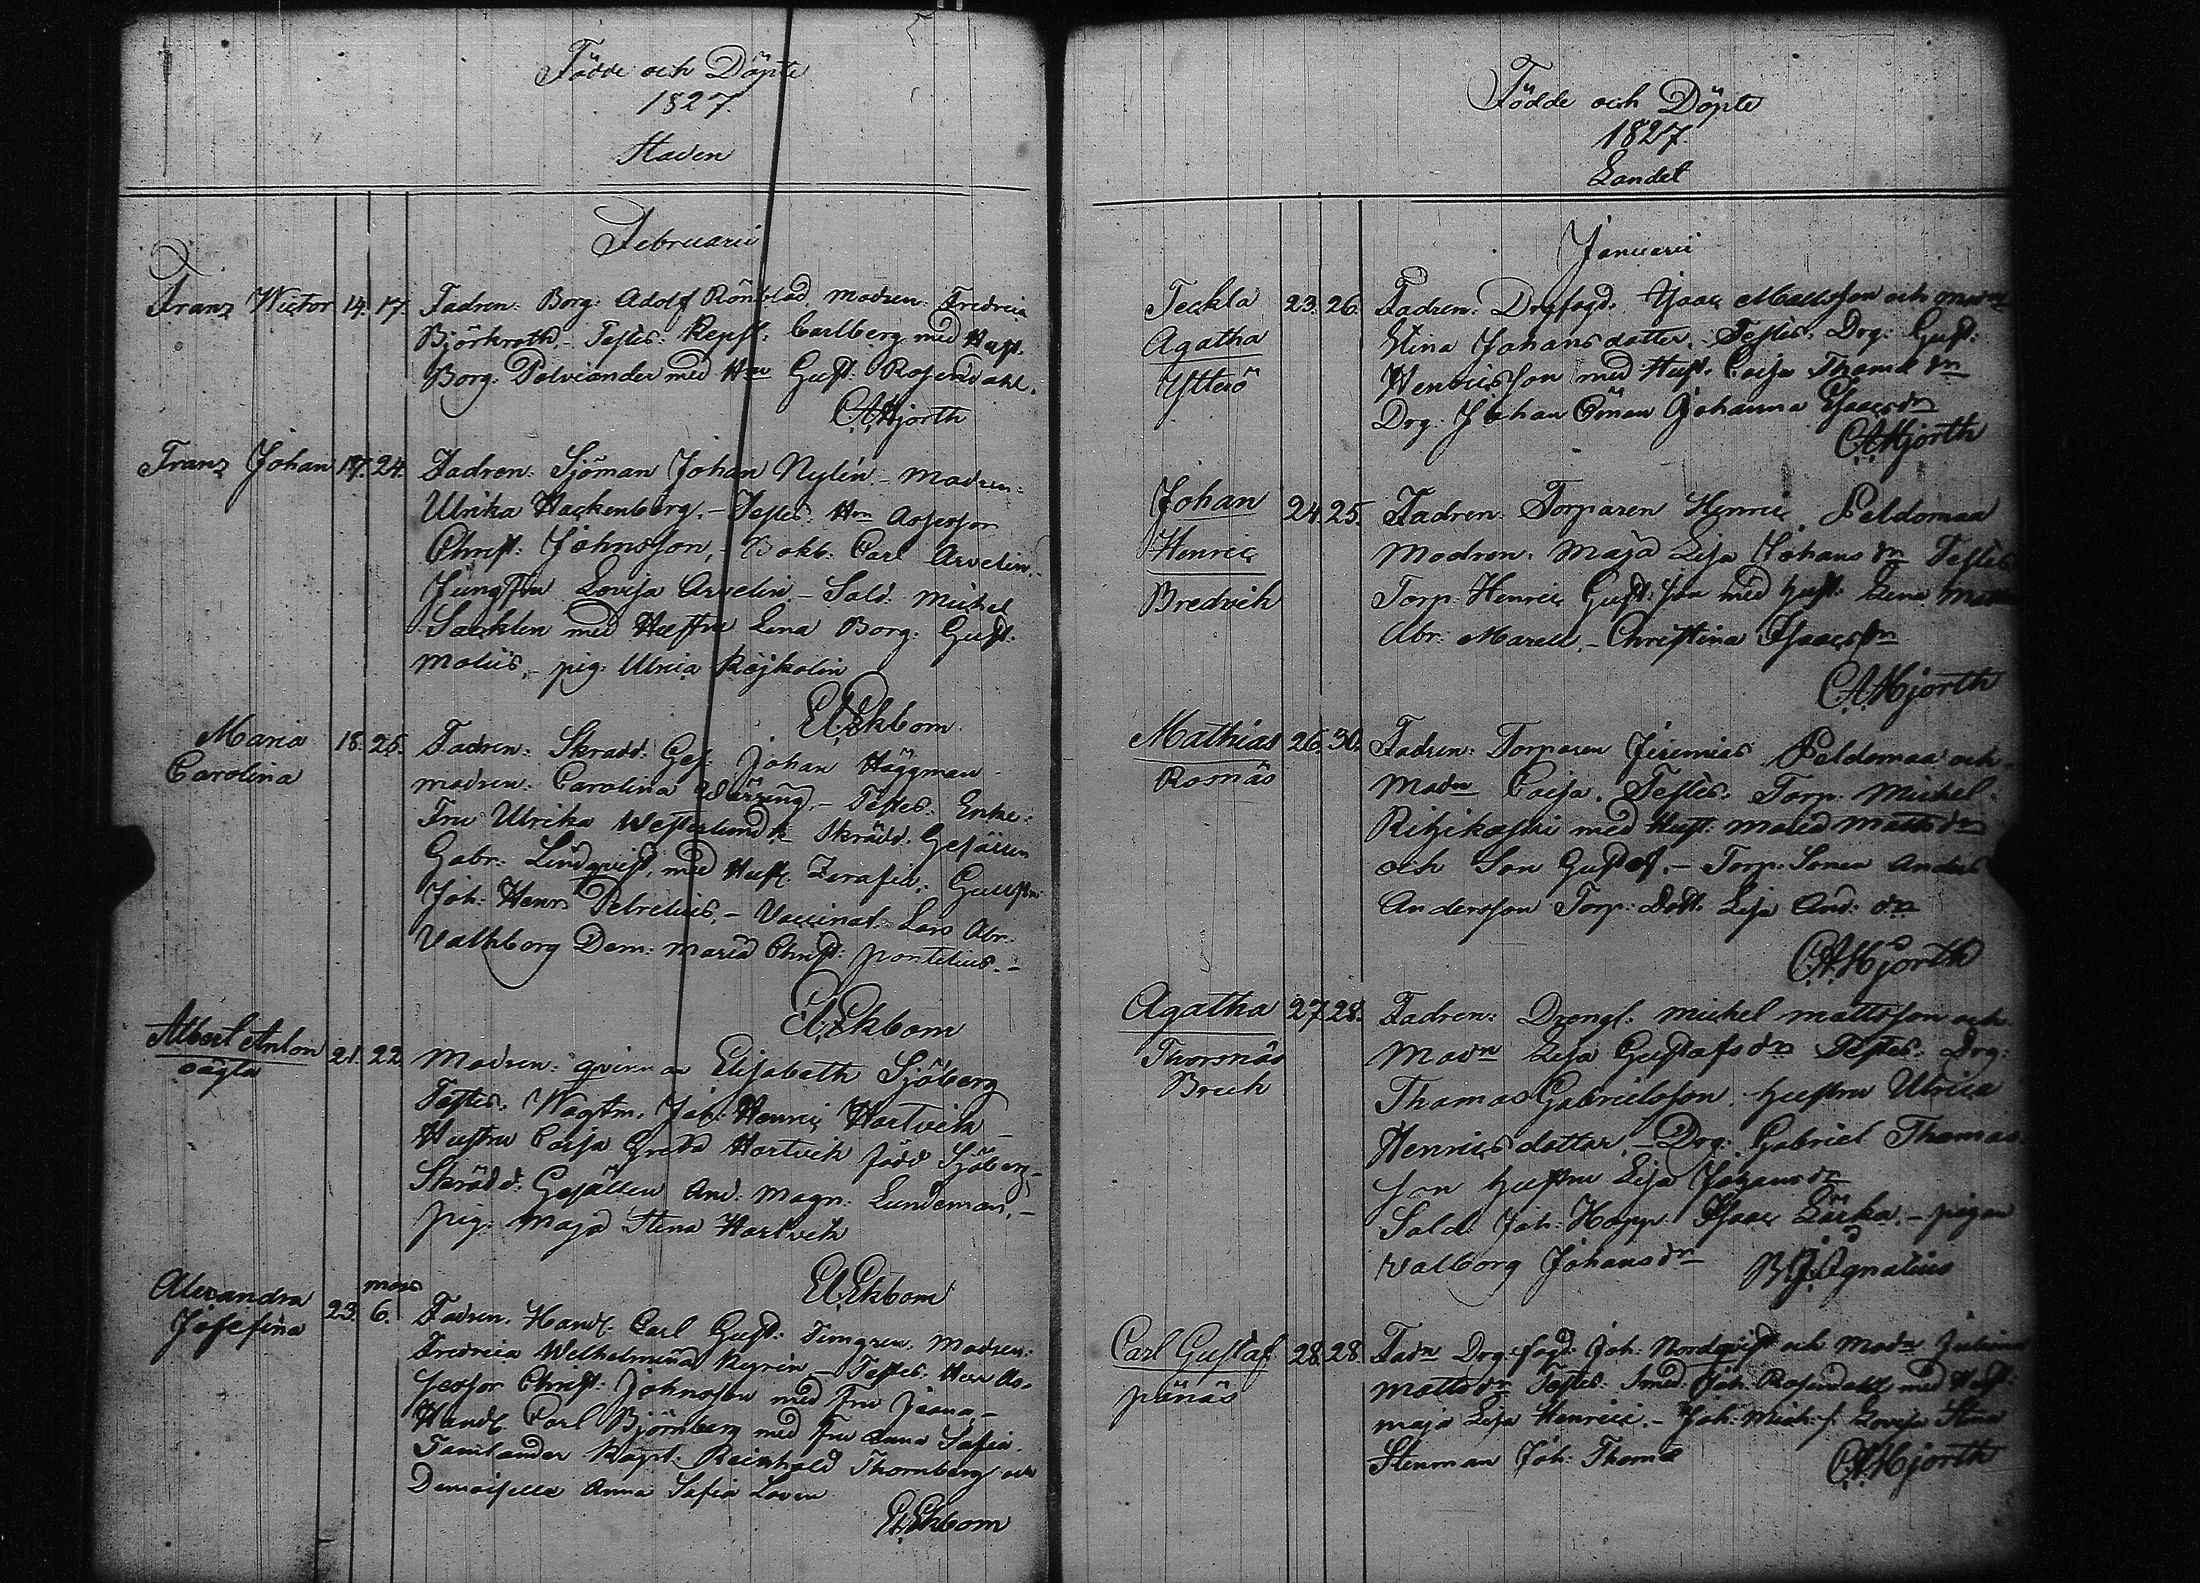 Födde och Döpte
1827.
Staden
Februarii
Franz Wictor 14. 17. Fadren: Borg: Adolf Rönblad, modren: Fredrica
Björkroth. - Testes: Repsl: Carlberg med Hust.
Borg: Polviander med H:ru Gust: Rosendahl.
CAHjorth
Franz Johan 17. 24. Fadren: Sjöman Johan Nylin. - modren:
Ulrika Hackenberg. - Testes: H:rr Assessor
Christ: Johnsson, - Bokb: Carl Arvelin. -
Jungfru Lovisa Arvelin. - Sold: Michel
Sacklen med Hustru Lena Borg: Gust:
Molüs, - pig: Ulrica Köjkolin
EAEkbom
Maria 18. 25. Fadren: Skradd: Ges: Johan Häggman
Carolina modren: Carolina Wäring. - Testes: Enke:
Fru Ulrika Westerlund, - Skrädd: Gesällen
Gabr: Lindqvist, med Hust. Zerafia,
Joh: Henr: - Vaccinat: Lars Abr:
Valkborg Dem: Maria Christ: pontelius. -
EAEkbom
Albert Anton 21. 22. Modren: qvinnan Elisabeth Sjöberg
oägta Testes: Wagtm. Joh: Henric Hartvik -
Hustru Caisa Greta Hartvik född Sjöberg -
Skrädd: Gesällen And: Magn: Lundeman, -
pig: Maja Stena Hartvik
EAEkbom
Alexandra 23. mars 6. Fadren. Handl: Carl Gust: Timgren, Modren:
Josefina Fredrica Welhelmina Kyrén - Testes: Herr As-
sessor Christ: Johnsson med Fru Joana, -
Handl. Carl Björnberg med Fru Anna Sofia.
Tamlander Kapt: Reinhold Thornberg och
Demoisella Anna Sofia Loven
EAEkbom
Födde och Döpte
1827.
Landet
Januarii
Teckla 23. 26. Fadren: Drgfogd. Isaac Mattsson och Mod:n
Agatha Stina Johansdotter. - Testes: Drg: Gust:
Ytterö Henricsson med Hust. Caisa Thomæ d:r
Drg: Johan Öman Johanna Isaacsd:r
CAHjorth
Johan 24. 25. Fadren: Torparen Henric Peldomaa
Henric Modren: Maja Lisa Johans d:r Testes
Bredvik Torp: Henric Gust:son med hust: Lena
Abr: Marell, - Christina Isaacsd:r
CAHjorth
Mathias 26. 30. Fadren: Torparen Jeremias Peldomaa och
Rosnäs Mod:n Caisa. Testes: Torp: Michel
Ritzikoski med Hust: Maria Matts d:r
och Son Gustaf. - Torp: Sonen Anders
Andersson Torp: Dott. Lisa And: d:r
CAHjorth
Agatha 27. 28. Fadren: Drengf: Michel Mattsson och
Thorsnäs Mod:n Lisa Gustafs d:r Testes: Drg:
Bruk Thomas Gabrielsson, hustru Ulrica
Henricsdotter, - Drg: Gabriel Thomas
son hustru Lisa Johansd:r
Sold: Joh: Hopp: Isaac Lörka, - pigan
Valborg Johansd:r BJIgnatius
Carl Gustaf 28. 28. Fad:n Drg:fogd: Joh: Nordqvist och Mod:n Juliana
pänäs Matts d:r Testes: Smed: Joh: Rosendahl med Hust:
Maja Lisa Henrici. - Joh: Mich: s. Lovisa Stina
Stenman Joh: Thomæ CAHjorth